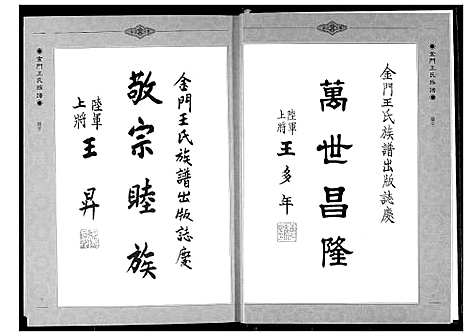 金門王氏族譜
金門王氏族譜出版誌慶
萬世昌隆
陸軍
上將
王多年
金門王氏族譜出版誌慶
敬宗睦族
陸軍
上將
王昇
金門王氏族譜